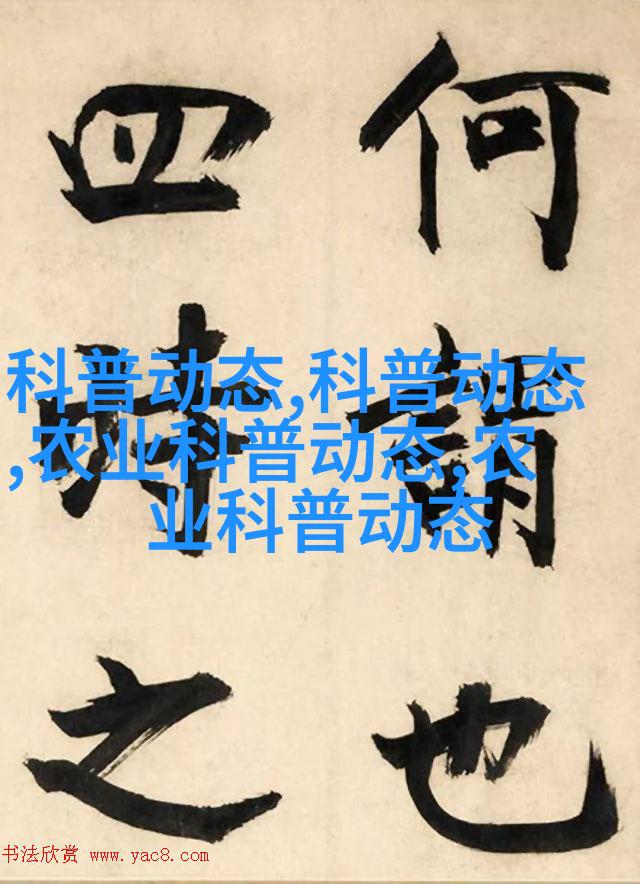 何謂也
四時之
科普动态,科普动态
,农业科普动态,农
业科普动态
书法欣赏 www.yac8.com